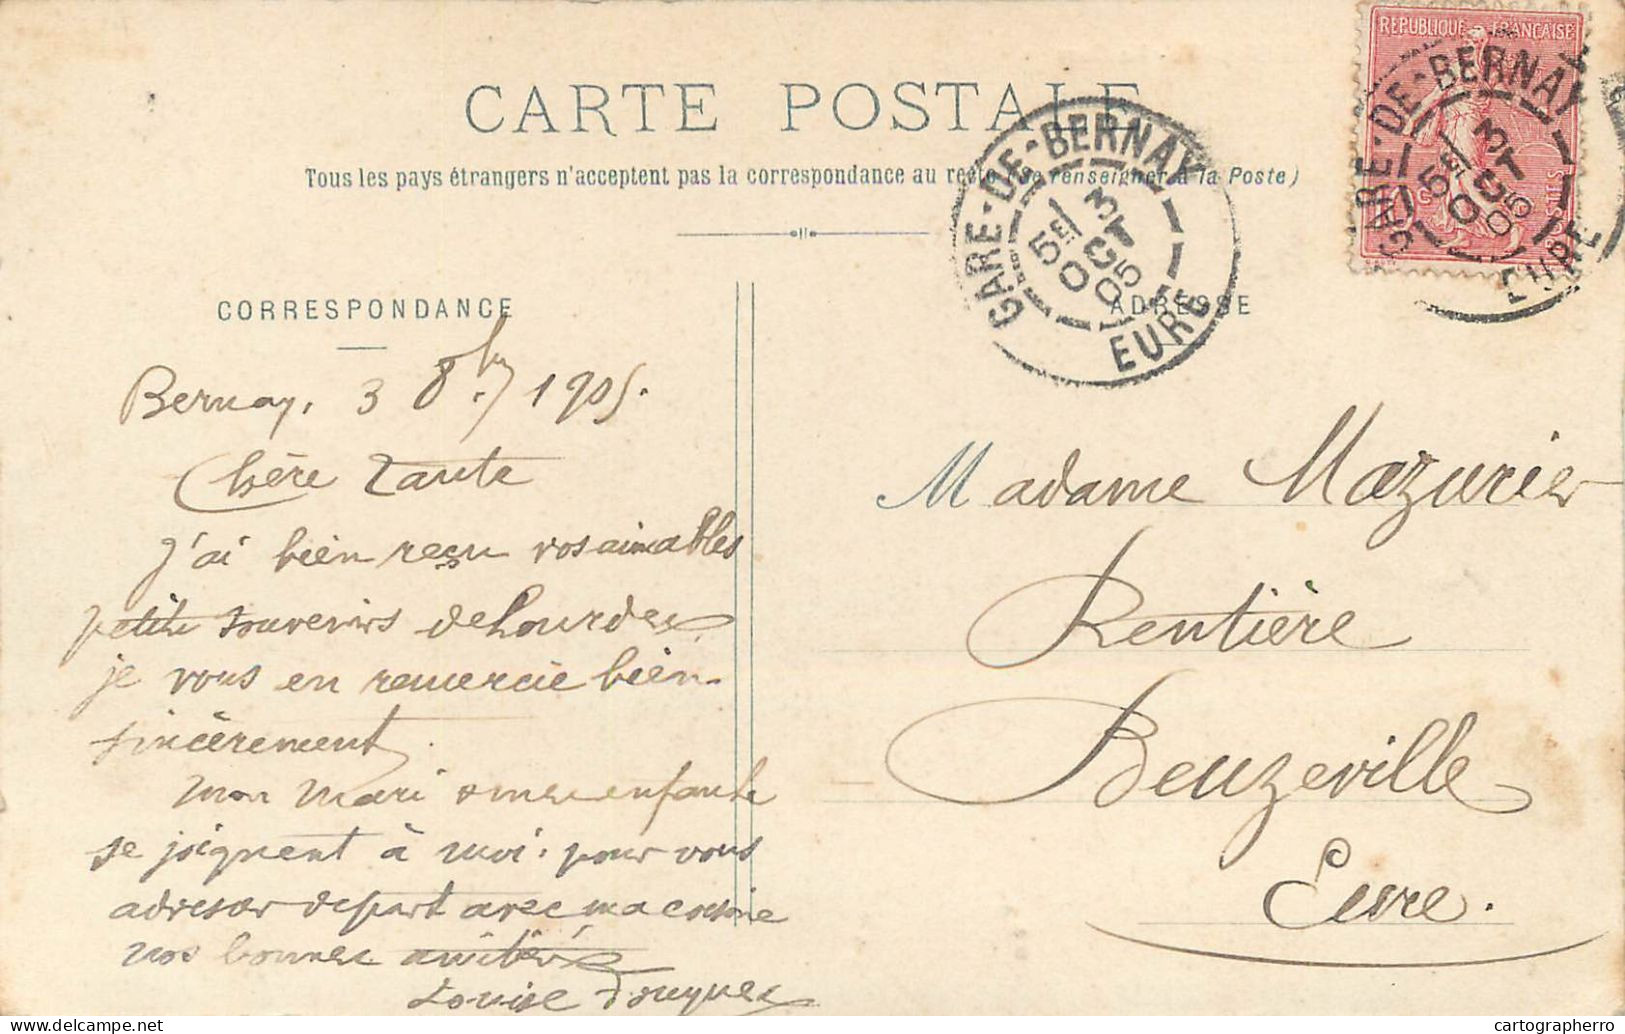 CARTE POSTALE
Tous les pays étrangers n'acceptent pas la correspondance au recto (se renseigner à la Poste)
REPUBLIQUE FRANÇAISE
POSTES
GARE-DE-BERNAY
5E/ 3
OCT
05
EURE
GARE-DE-BERNAY
5E/ 3
OCT
05
EURE
CORRESPONDANCE
Bernay, 3 8bre 1905.
Chère Tante
J'ai bien reçu vos aimables
petits souvenirs de Lourdes
je vous en remercie bien
sincèrement.
Mon mari & mes enfants
se joignent à moi pour vous
adresser départ avec ma cousine
nos bonnes amitiés
Louise
ADRESSE
Madame Mazurier
Rentière
Beuzeville
Eure.
www.delcampe.net
cartographerro